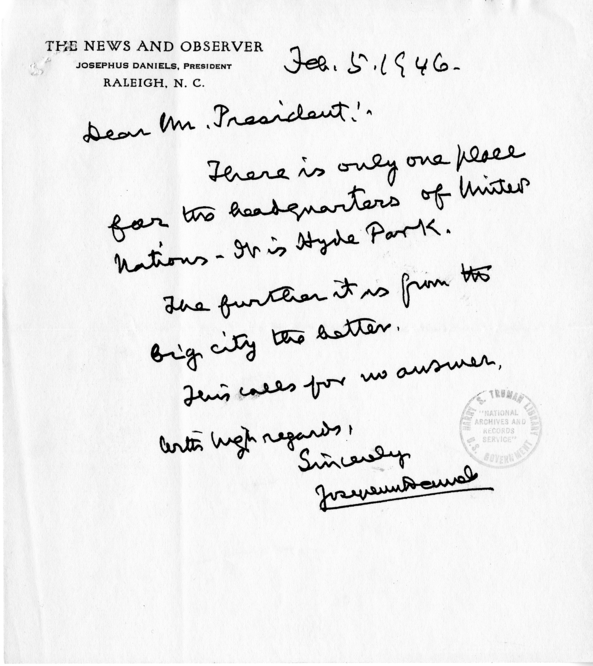 THE NEWS AND OBSERVER
JOSEPHUS DANIELS, PRESIDENT
RALEIGH, N. C.
Feb. 5. 1946.
Dear Mr. President:
There is only one place
for the headquarters of United
Nations - It is Hyde Park.
The further it is from the
big city the better.
This calls for no answer.
With high regards,
Sincerely
Josephus Daniels
HARRY S. TRUMAN LIBRARY
"NATIONAL
ARCHIVES AND
RECORDS
SERVICE"
U.S. GOVERNMENT